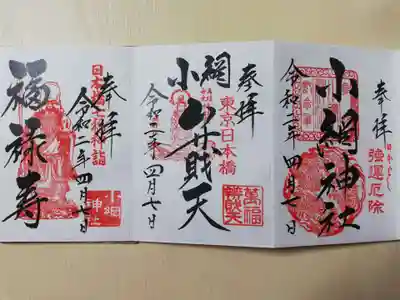 奉拝
日本橋七福神詣
福禄寿
令和二年四月七日
小網
神社
奉拝
東京日本橋
小網弁財天
令和二年四月七日
萬福
舟財天
奉拝
強運厄除
小網神社
令和二年四月七日